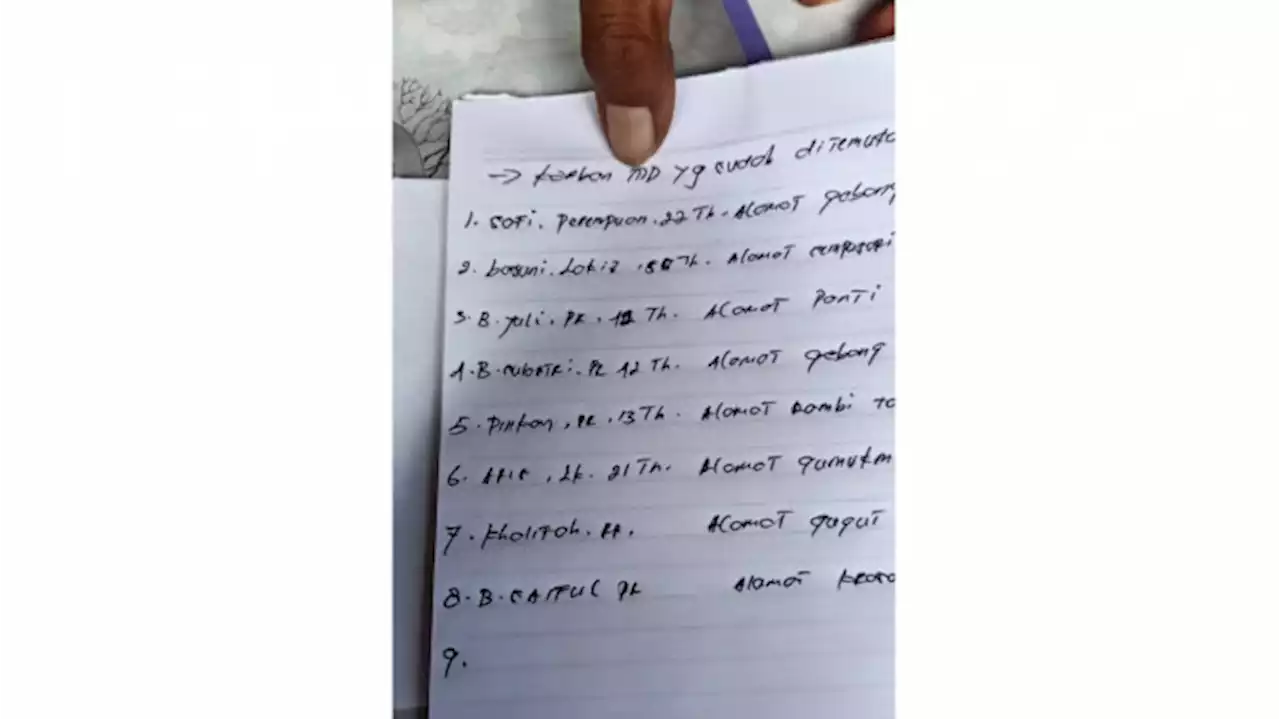 → korban MD yg sudah ditemuka
1. Sofi. Perempuan. 22 Th. Alamat gebang
2. basuni. Laki2. Th. Alamat
3. B. Yuli. PR. Th. Alamat Panti
4. B. Sulastri. PR 42 Th. Alamat gebang
5. Pinkan, PR, 13 Th. Alamat Rambi
6. , Lk. 21 Th. Alamat gumukm
7. Kholifah. PR. Alamat gugut
8. B. SAIFUL PR Alamat
9.